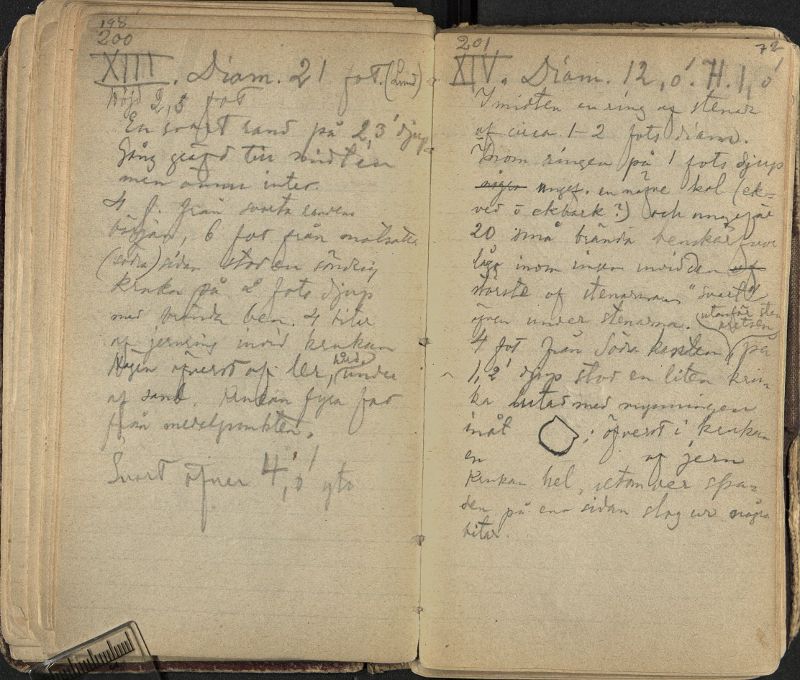 198
200
XIII. Diam. 21 fot. (Lund)
Höjd 2,5 fot
En svart rand på 2,3' djup.
Gång gräfd till midten
men ännu intet.
4 f. från svarta randens
början, 6 fot från motsatta
(södra) sidan stod en söndrig
kruka på 2 fots djup
med brända ben. 4 bitar
af jernring invid krukan
Högen öfverst af ler, under
af sand. Krukan fyra fot
från medelpunkten.
Svart öfver 4,0' yta
201
72
XIV. Diam. 12,0'. H. 1,0'
I midten en ring af stenar
af circa 1-2 fots diam.
Inom ringen på 1 fots djup
några kol (ek-
ved o ekbark?) och ungefär
20 små brända benskärfvor
låg inom ringen invid den af
största af stenarna. "Svart"
äfven under stenarna.
utanför sten
kretsen
4 fot från Södra kanten på
1,2' djup stod en liten kru-
ka lutad med mynningen
inåt ; öfverst i krukan
en af jern
Krukan hel, utom der spa-
den på ena sidan slog ur några
bitar.